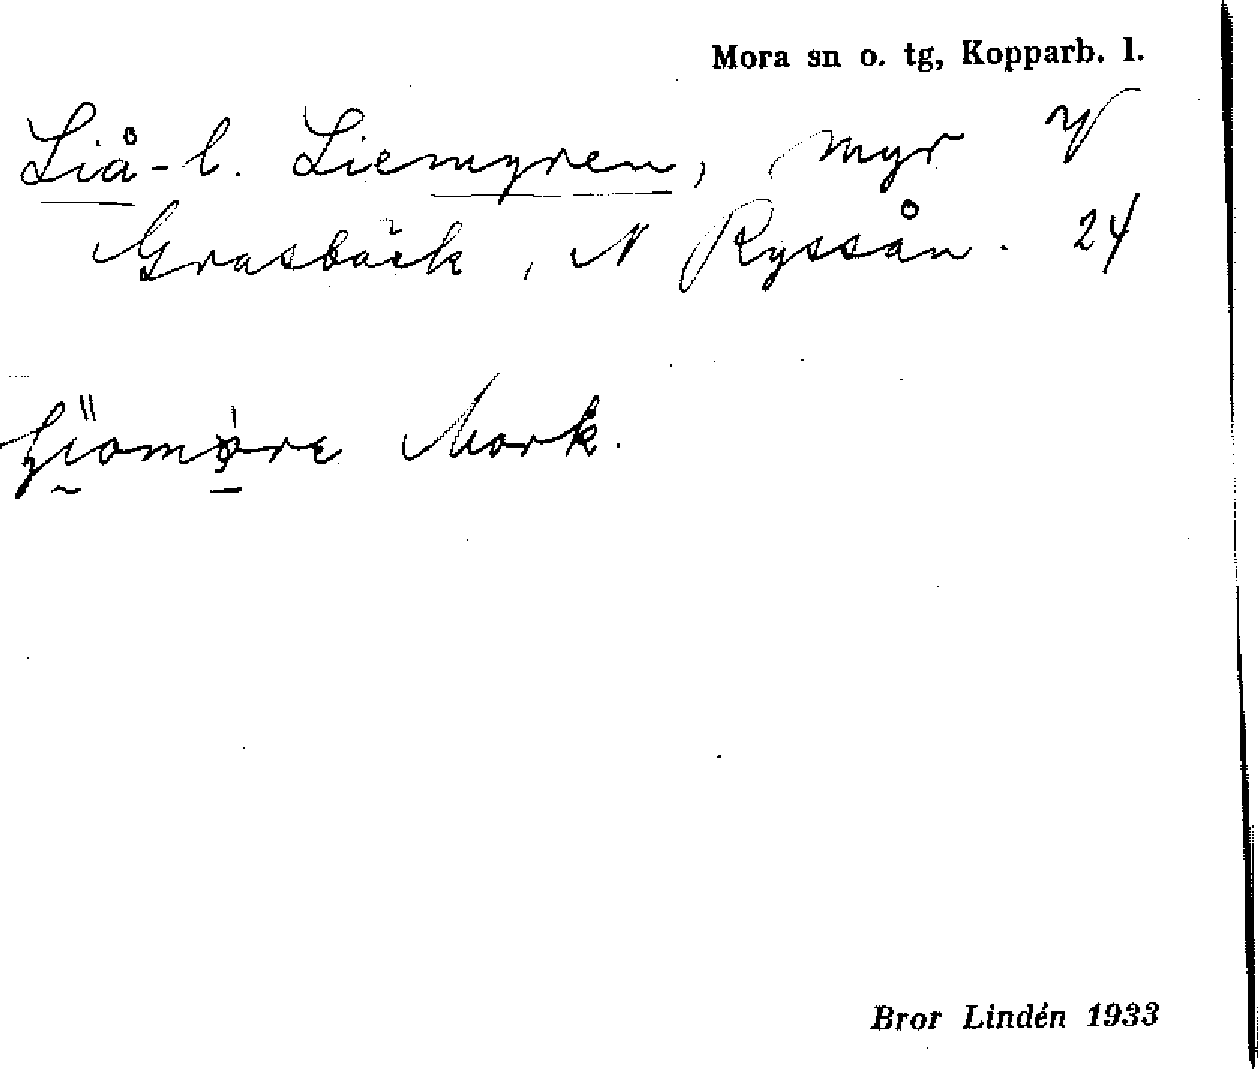 Mora sn o. tg, Kopparb. l.
Liå- l. Liemyren, myr V
Grasbäck, N Ryssån. 24
Mork.
Bror Lindén 1933